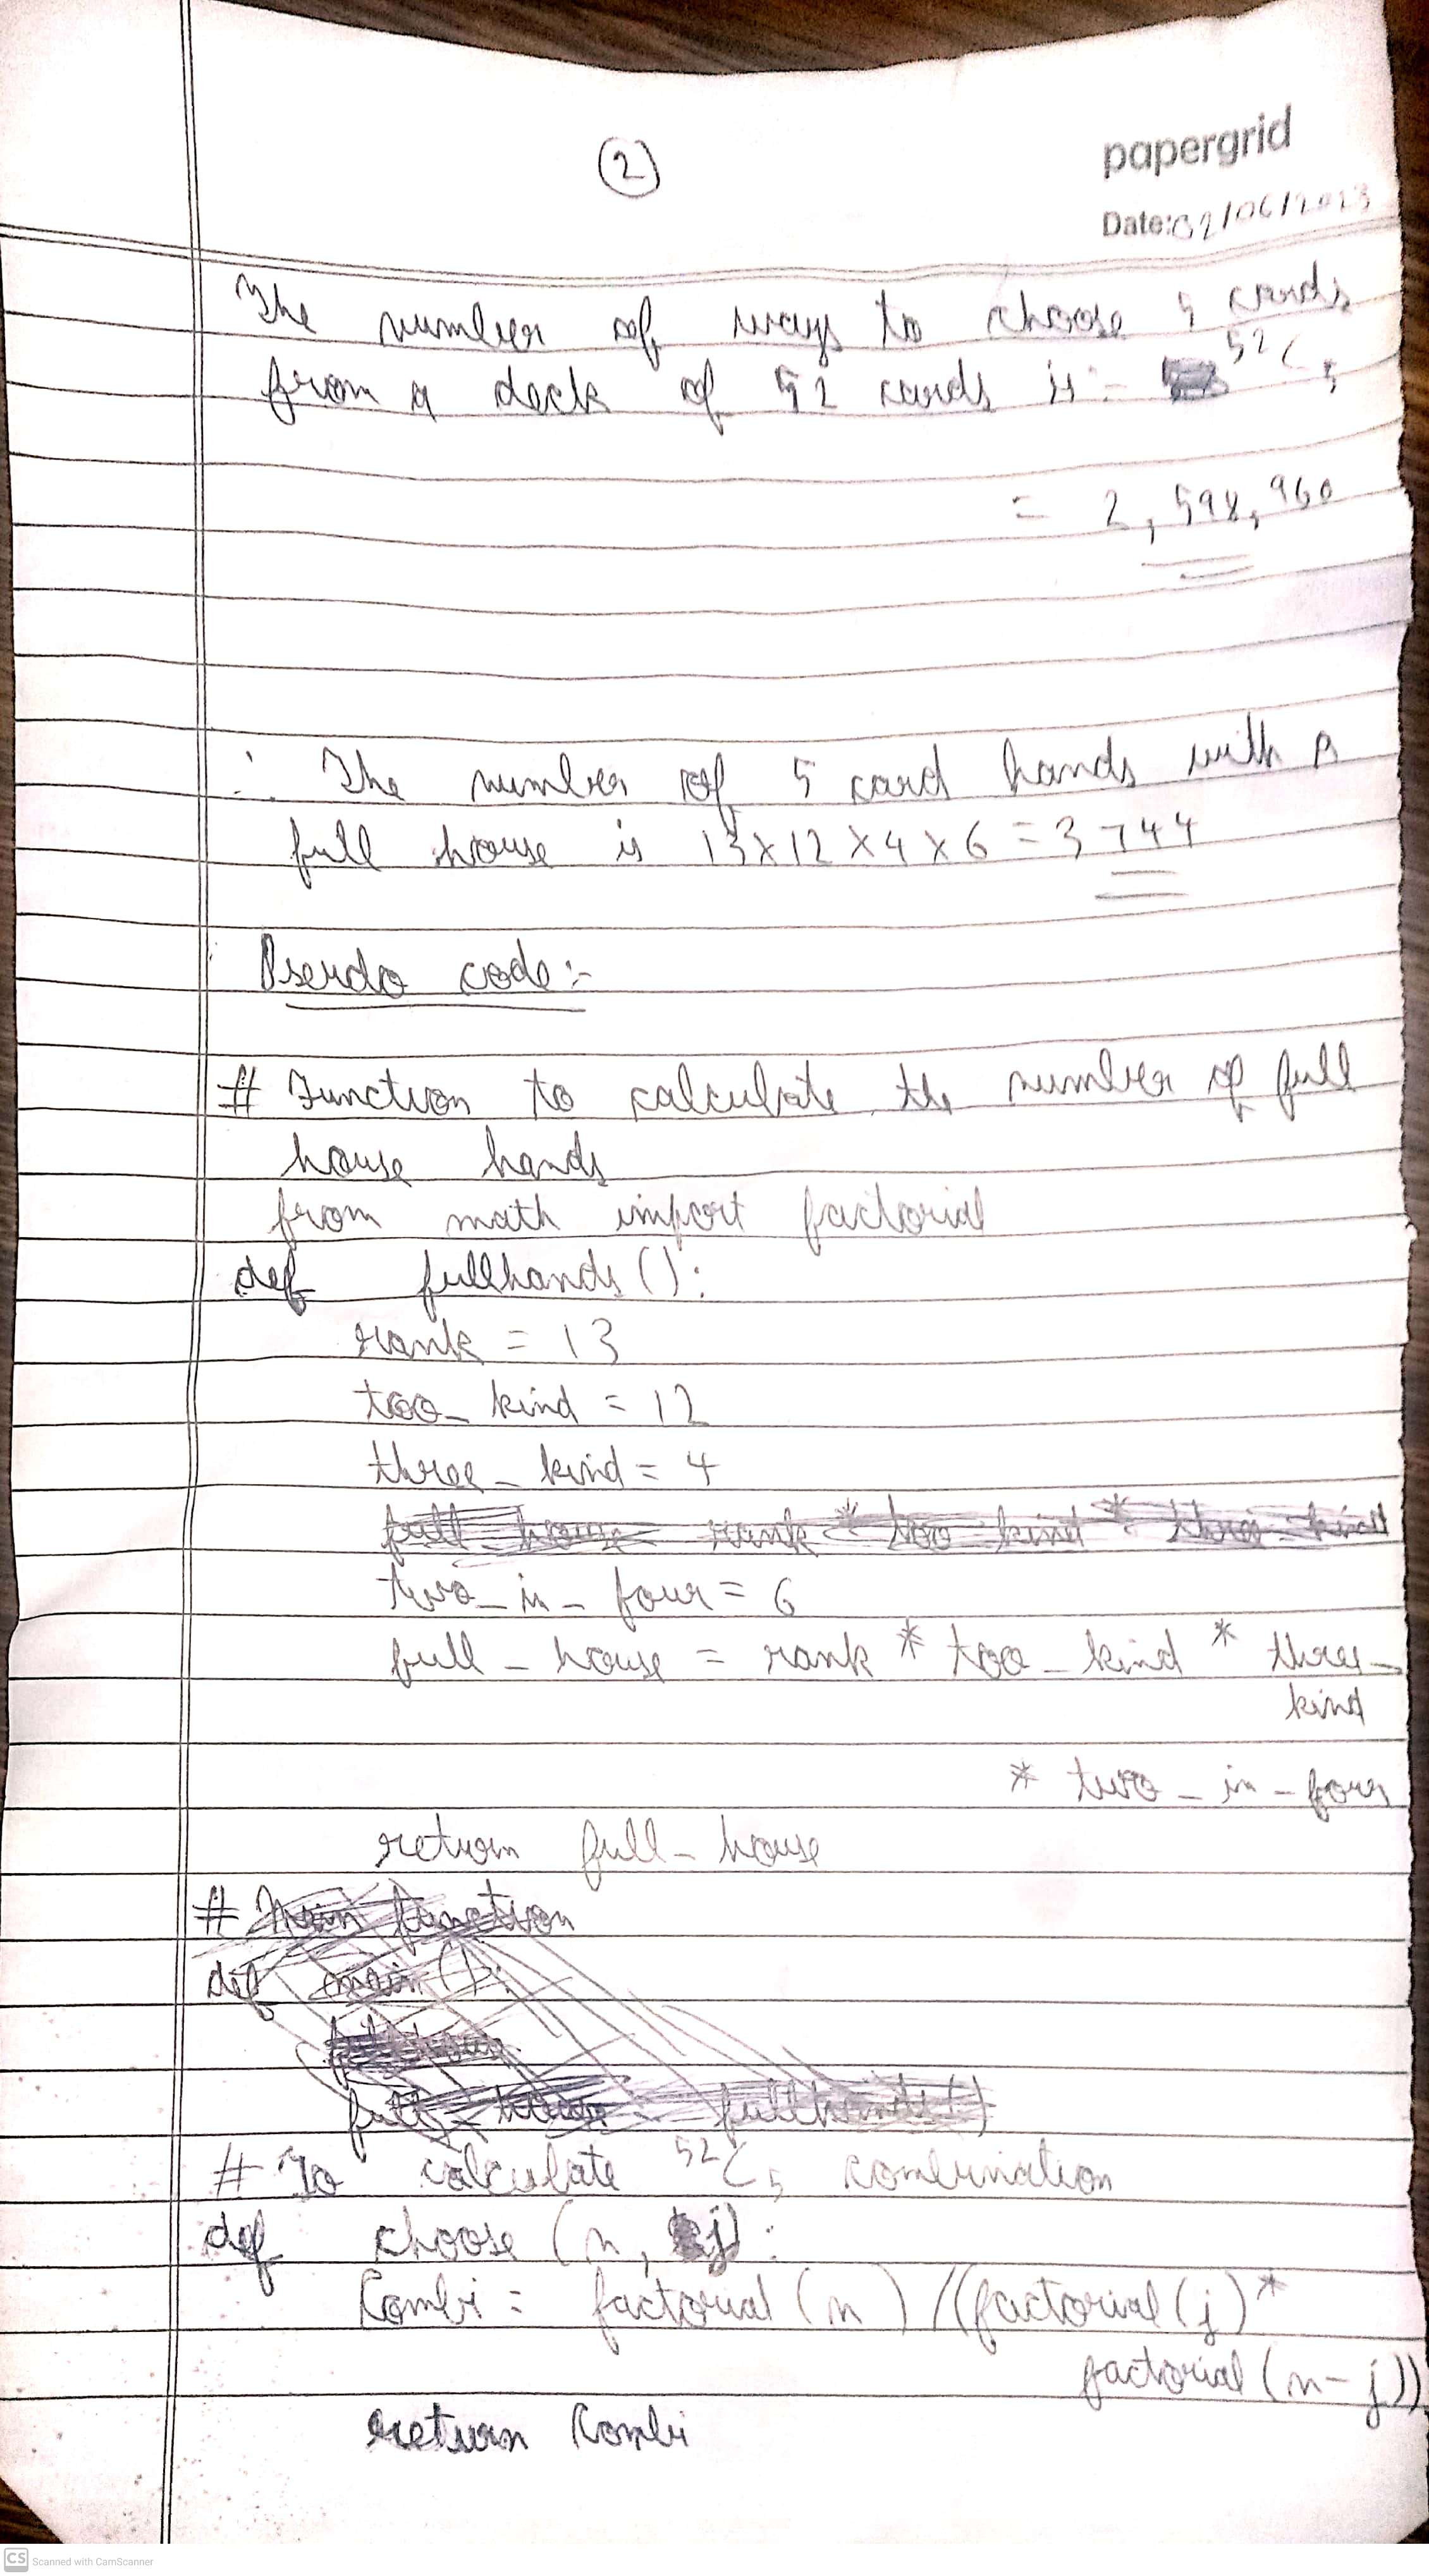 2
papergrid
Date:02/06/2023
The number of ways to choose 5 cards
from a deck of 52 cards is :- ⁵²C₅
= 2,598,960
∴ The number of 5 card hands with a
full house is 13×12×4×6=3744
Pseudo code:-
# Function to calculate the number of full
house hands
from math import factorial
def fullhands():
rank = 13
too_kind = 12
three_kind = 4
full_house rank * too_kind * three_kind
two_in_four = 6
full_house = rank * too_kind * three_
kind
* two_in_four
return full_house
# Main function
def main():
full_house = fullhands()
# To calculate ⁵²C₅ combination
def choose (n, j):
Combi = factorial(n) /(factorial(j)*
factorial(n-j))
return Combi
CS Scanned with CamScanner